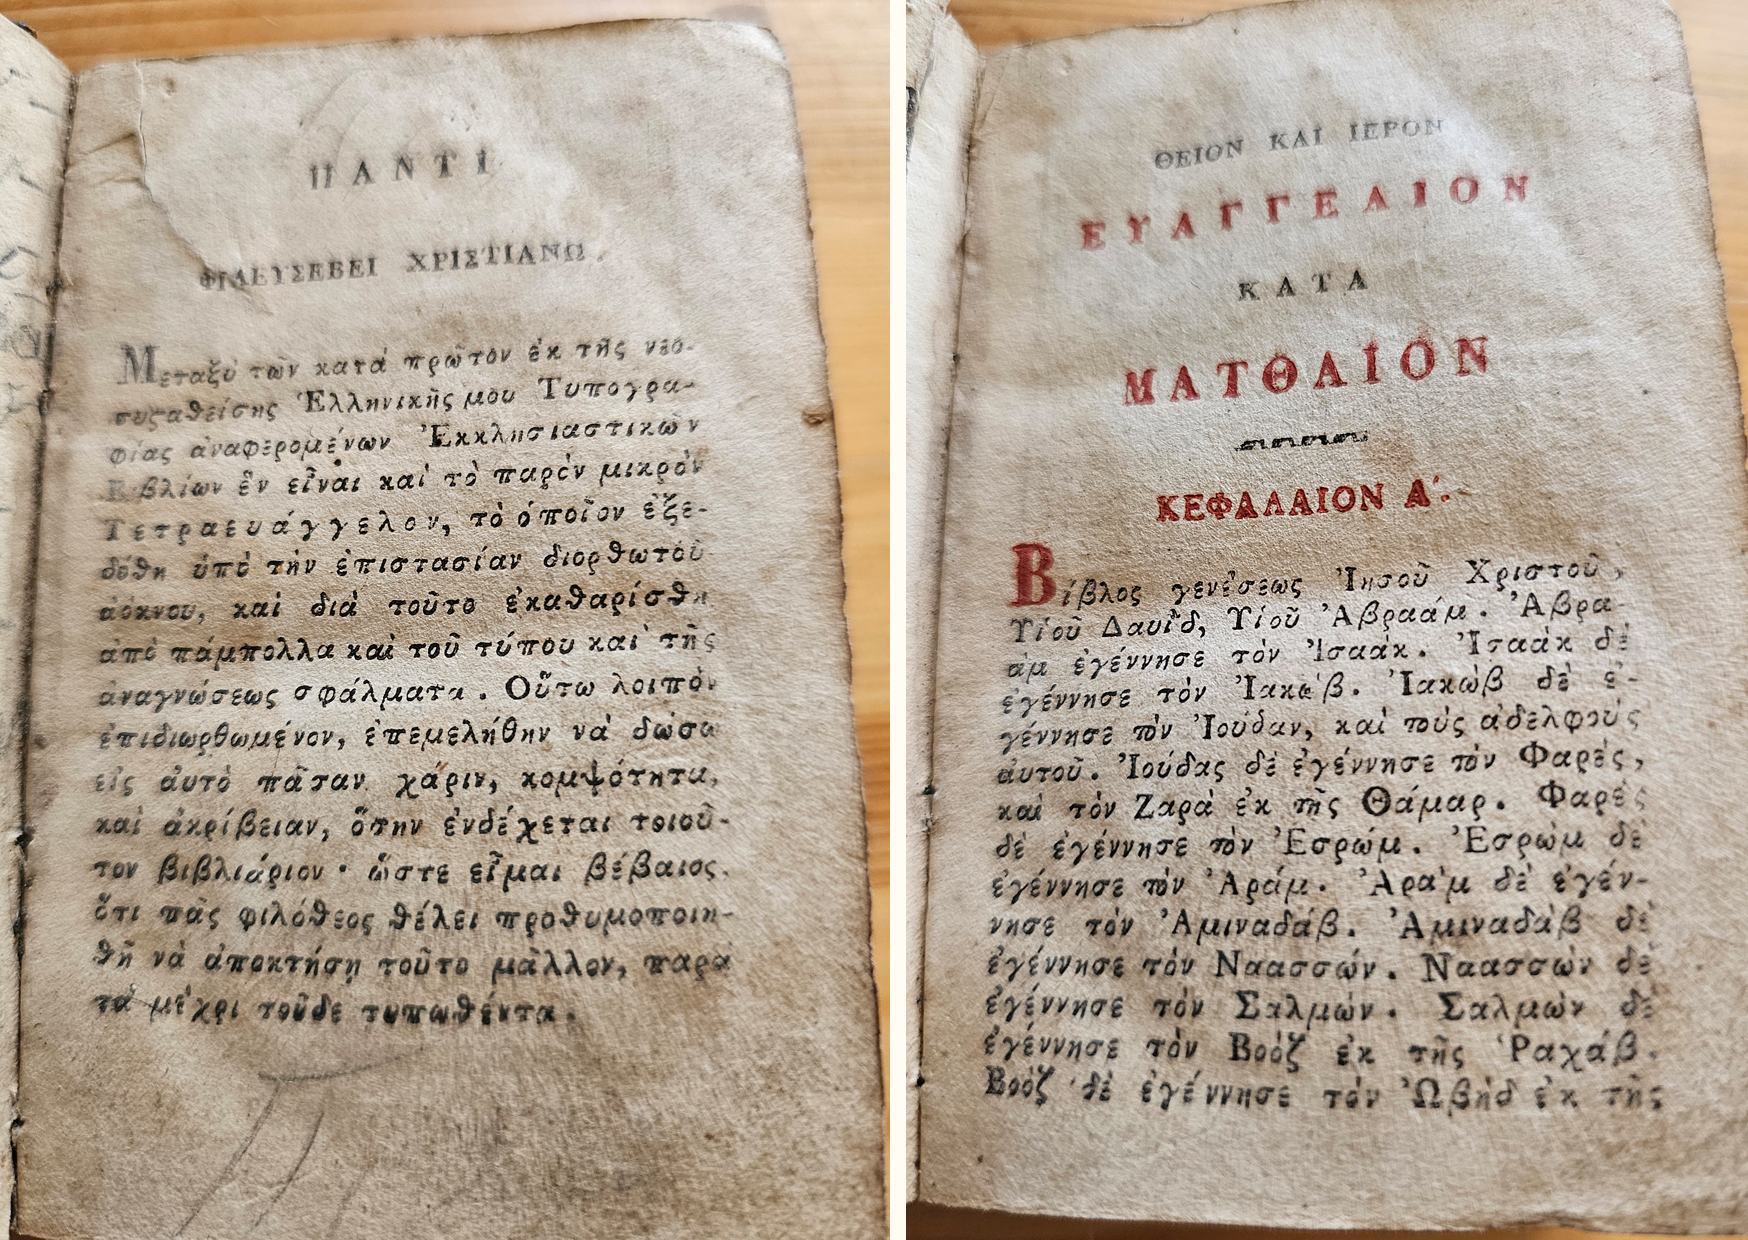 ΠΑΝΤΙ
ΦΙΛΕΥΣΕΒΕΙ ΧΡΙΣΤΙΑΝΩ.
Μεταξὺ τῶν κατὰ πρῶτον ἐκ τῆς νεο-
συϛαθείσης Ἑλληνικῆς μου Τυπογρα-
φίας ἀναφερομένων Ἐκκλησιαστικῶν
Βιβλίων ἓν εἶναι καὶ τὸ παρὸν μικρὸν
Τετραευάγγελον, τὸ ὁποῖον ἐξε-
δόθη ὑπὸ τὴν ἐπιστασίαν διορθωτοῦ
ἀόκνου, καὶ διὰ τοῦτο ἐκαθαρίσθη
ἀπὸ πάμπολλα καὶ τοῦ τύπου καὶ τῆς
ἀναγνώσεως σφάλματα. Οὕτω λοιπὸν
ἐπιδιωρθωμένον, ἐπεμελήθην νὰ δώσω
εἰς ἀυτὸ πᾶσαν χάριν, κομψότητα,
καὶ ἀκρίβειαν, ὅσην ἐνδέχεται τοιοῦ-
τον βιβλιάριον· ὥστε εἶμαι βέβαιος,
ὅτι πᾶς φιλόθεος θέλει προθυμοποιη-
θῆ νὰ ἀποκτήσῃ τοῦτο μᾶλλον, παρὰ
τὰ μέχρι τοῦδε τυπωθέντα.
ΘΕΙΟΝ ΚΑΙ ΙΕΡΟΝ
ΕΥΑΓΓΕΛΙΟΝ
ΚΑΤΑ
ΜΑΤΘΑΙΟΝ
ΚΕΦΑΛΑΙΟΝ Α΄.
Βίβλος γενέσεως Ἰησοῦ Χριστοῦ,
Υἱοῦ Δαυῒδ, Υἱοῦ Ἀβραάμ. Ἀβρα-
ὰμ ἐγέννησε τὸν Ἰσαάκ. Ἰσαὰκ δὲ
ἐγέννησε τὸν Ἰακώβ. Ἰακὼβ δὲ ἐ-
γέννησε τὸν Ἰούδαν, καὶ τοὺς ἀδελφοὺς
ἀυτοῦ. Ἰούδας δὲ ἐγέννησε τὸν Φαρὲς,
καὶ τὸν Ζαρὰ ἐκ τῆς Θάμαρ. Φαρὲς
δὲ ἐγέννησε τὸν Ἐσρώμ. Ἐσρὼμ δὲ
ἐγέννησε τὸν Ἀράμ. Ἀρὰμ δὲ ἐγέν-
νησε τὸν Ἀμιναδάβ. Ἀμιναδὰβ δὲ
ἐγέννησε τὸν Ναασσών. Ναασσὼν δὲ
ἐγέννησε τὸν Σαλμών. Σαλμὼν δὲ
ἐγέννησε τὸν Βοὸζ ἐκ τῆς Ῥαχάβ.
Βοὸζ δὲ ἐγέννησε τὸν Ὠβὴδ ἐκ τῆς